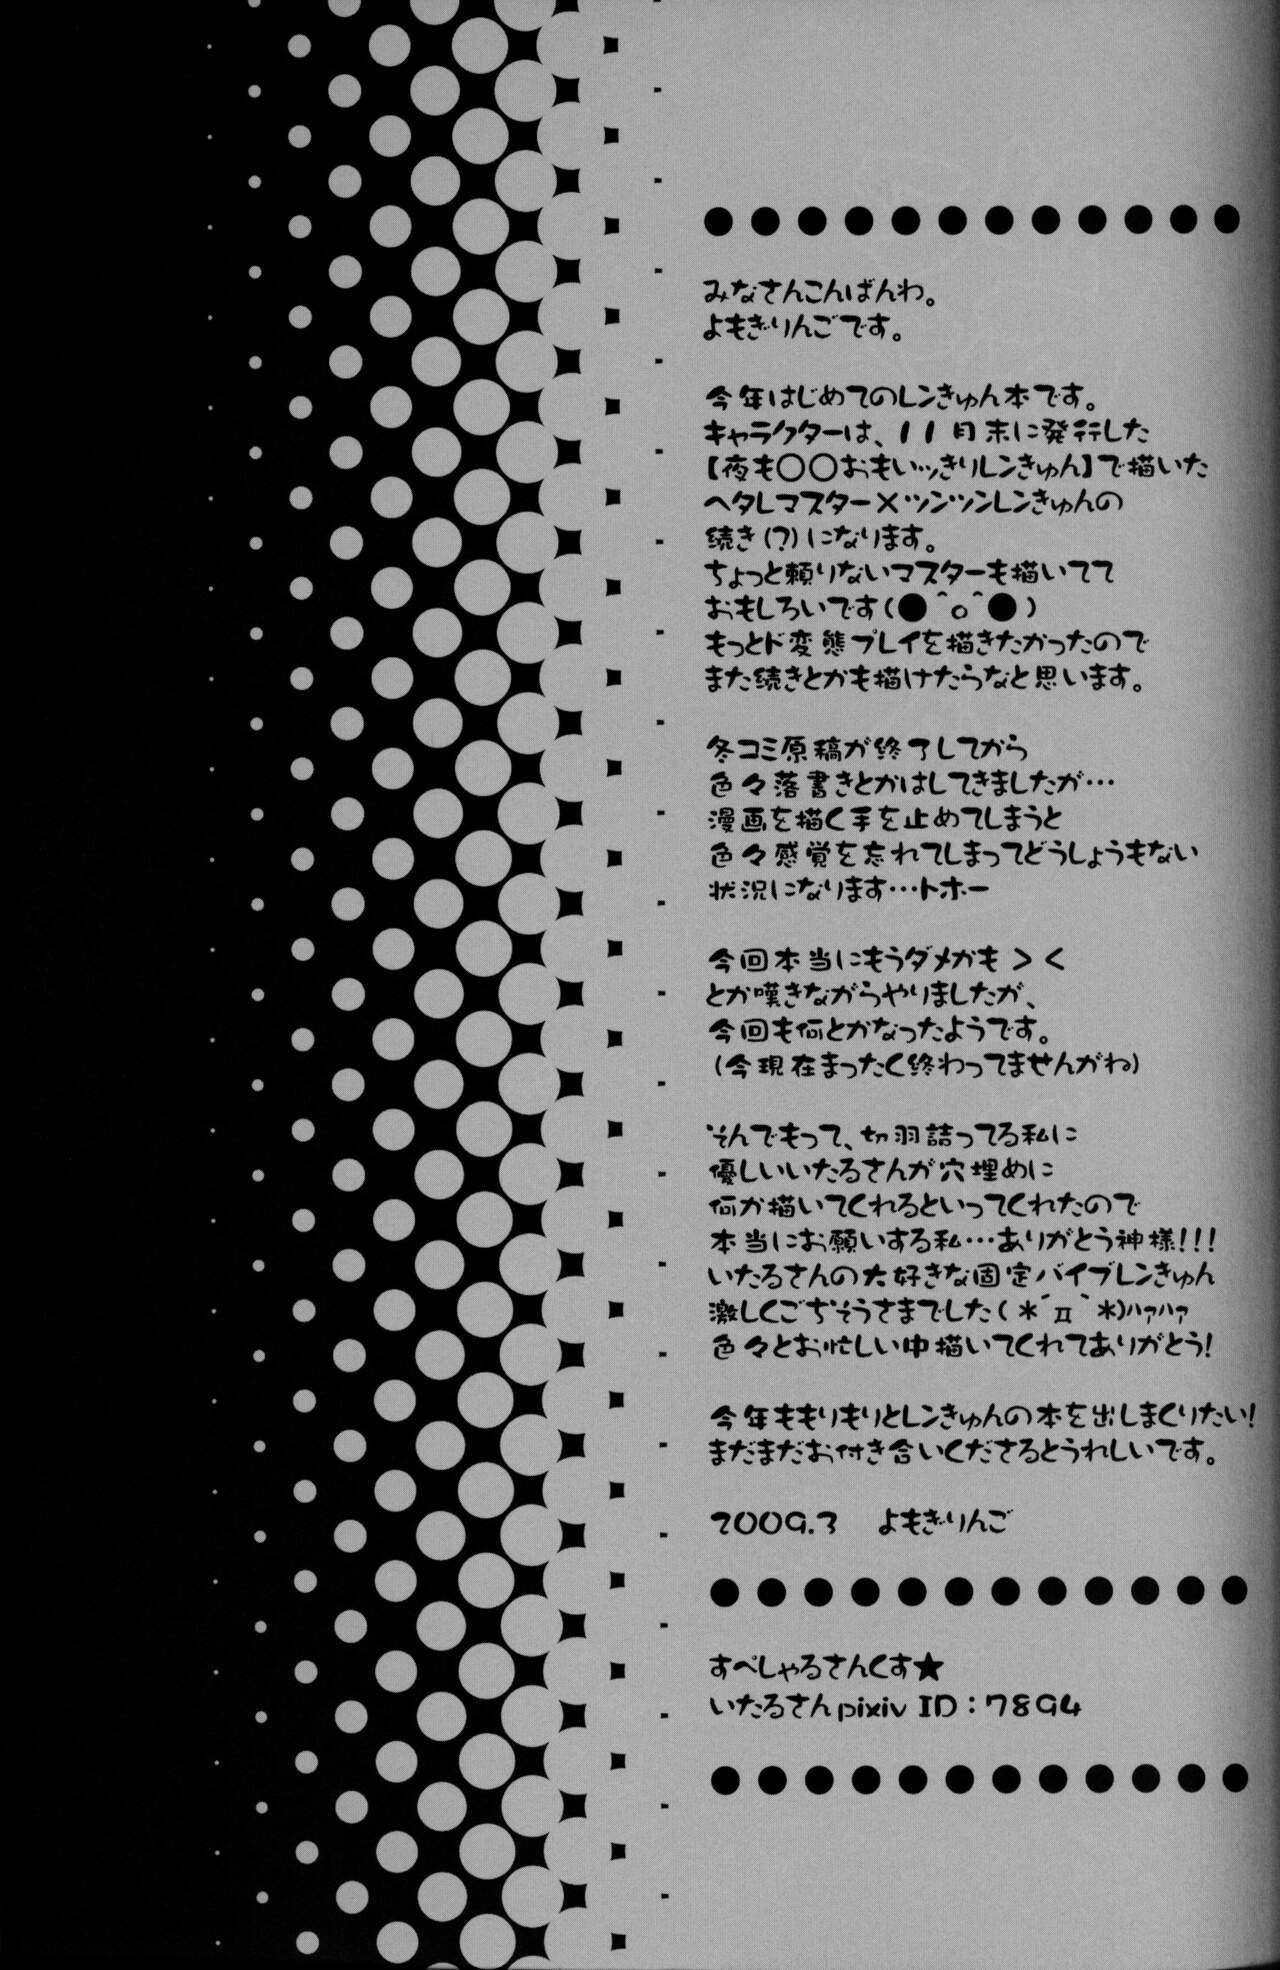 みなさんこんばんわ。
よもぎりんごです。
今年はじめてのレンきゅん本です。
キャラクターは、11月末に発行した
【夜も○○おもいッきりレンきゅん】で描いた
ヘタレマスター×ツンツンレンきゅんの
続き(?)になります。
ちょっと頼りないマスターも描いてて
おもしろいです(●＾o＾●)
もっとド変態プレイを描きたかったので
また続きとかも描けたらなと思います。
冬コミ原稿が終了してから
色々落書きとかはしてきましたが…
漫画を描く手を止めてしまうと
色々感覚を忘れてしまってどうしょうもない
状況になります…トホー
今回本当にもうダメかも＞＜
とか嘆きながらやりましたが、
今回も何とかなったようです。
(今現在まったく終わってませんがね)
そんでもって、切羽詰ってる私に
優しいいたるさんが穴埋めに
何か描いてくれるといってくれたので
本当にお願いする私…ありがとう神様!!!
いたるさんの大好きな固定バイブレンきゅん
激しくごちそうさまでした(*´д｀*)ﾊｧﾊｧ
色々とお忙しい中描いてくれてありがとう!
今年ももりもりとレンきゅんの本を出しまくりたい!
まだまだお付き合いくださるとうれしいです。
2009.3　よもぎりんご
すぺしゃるさんくす★
いたるさんpixiv ID：7894